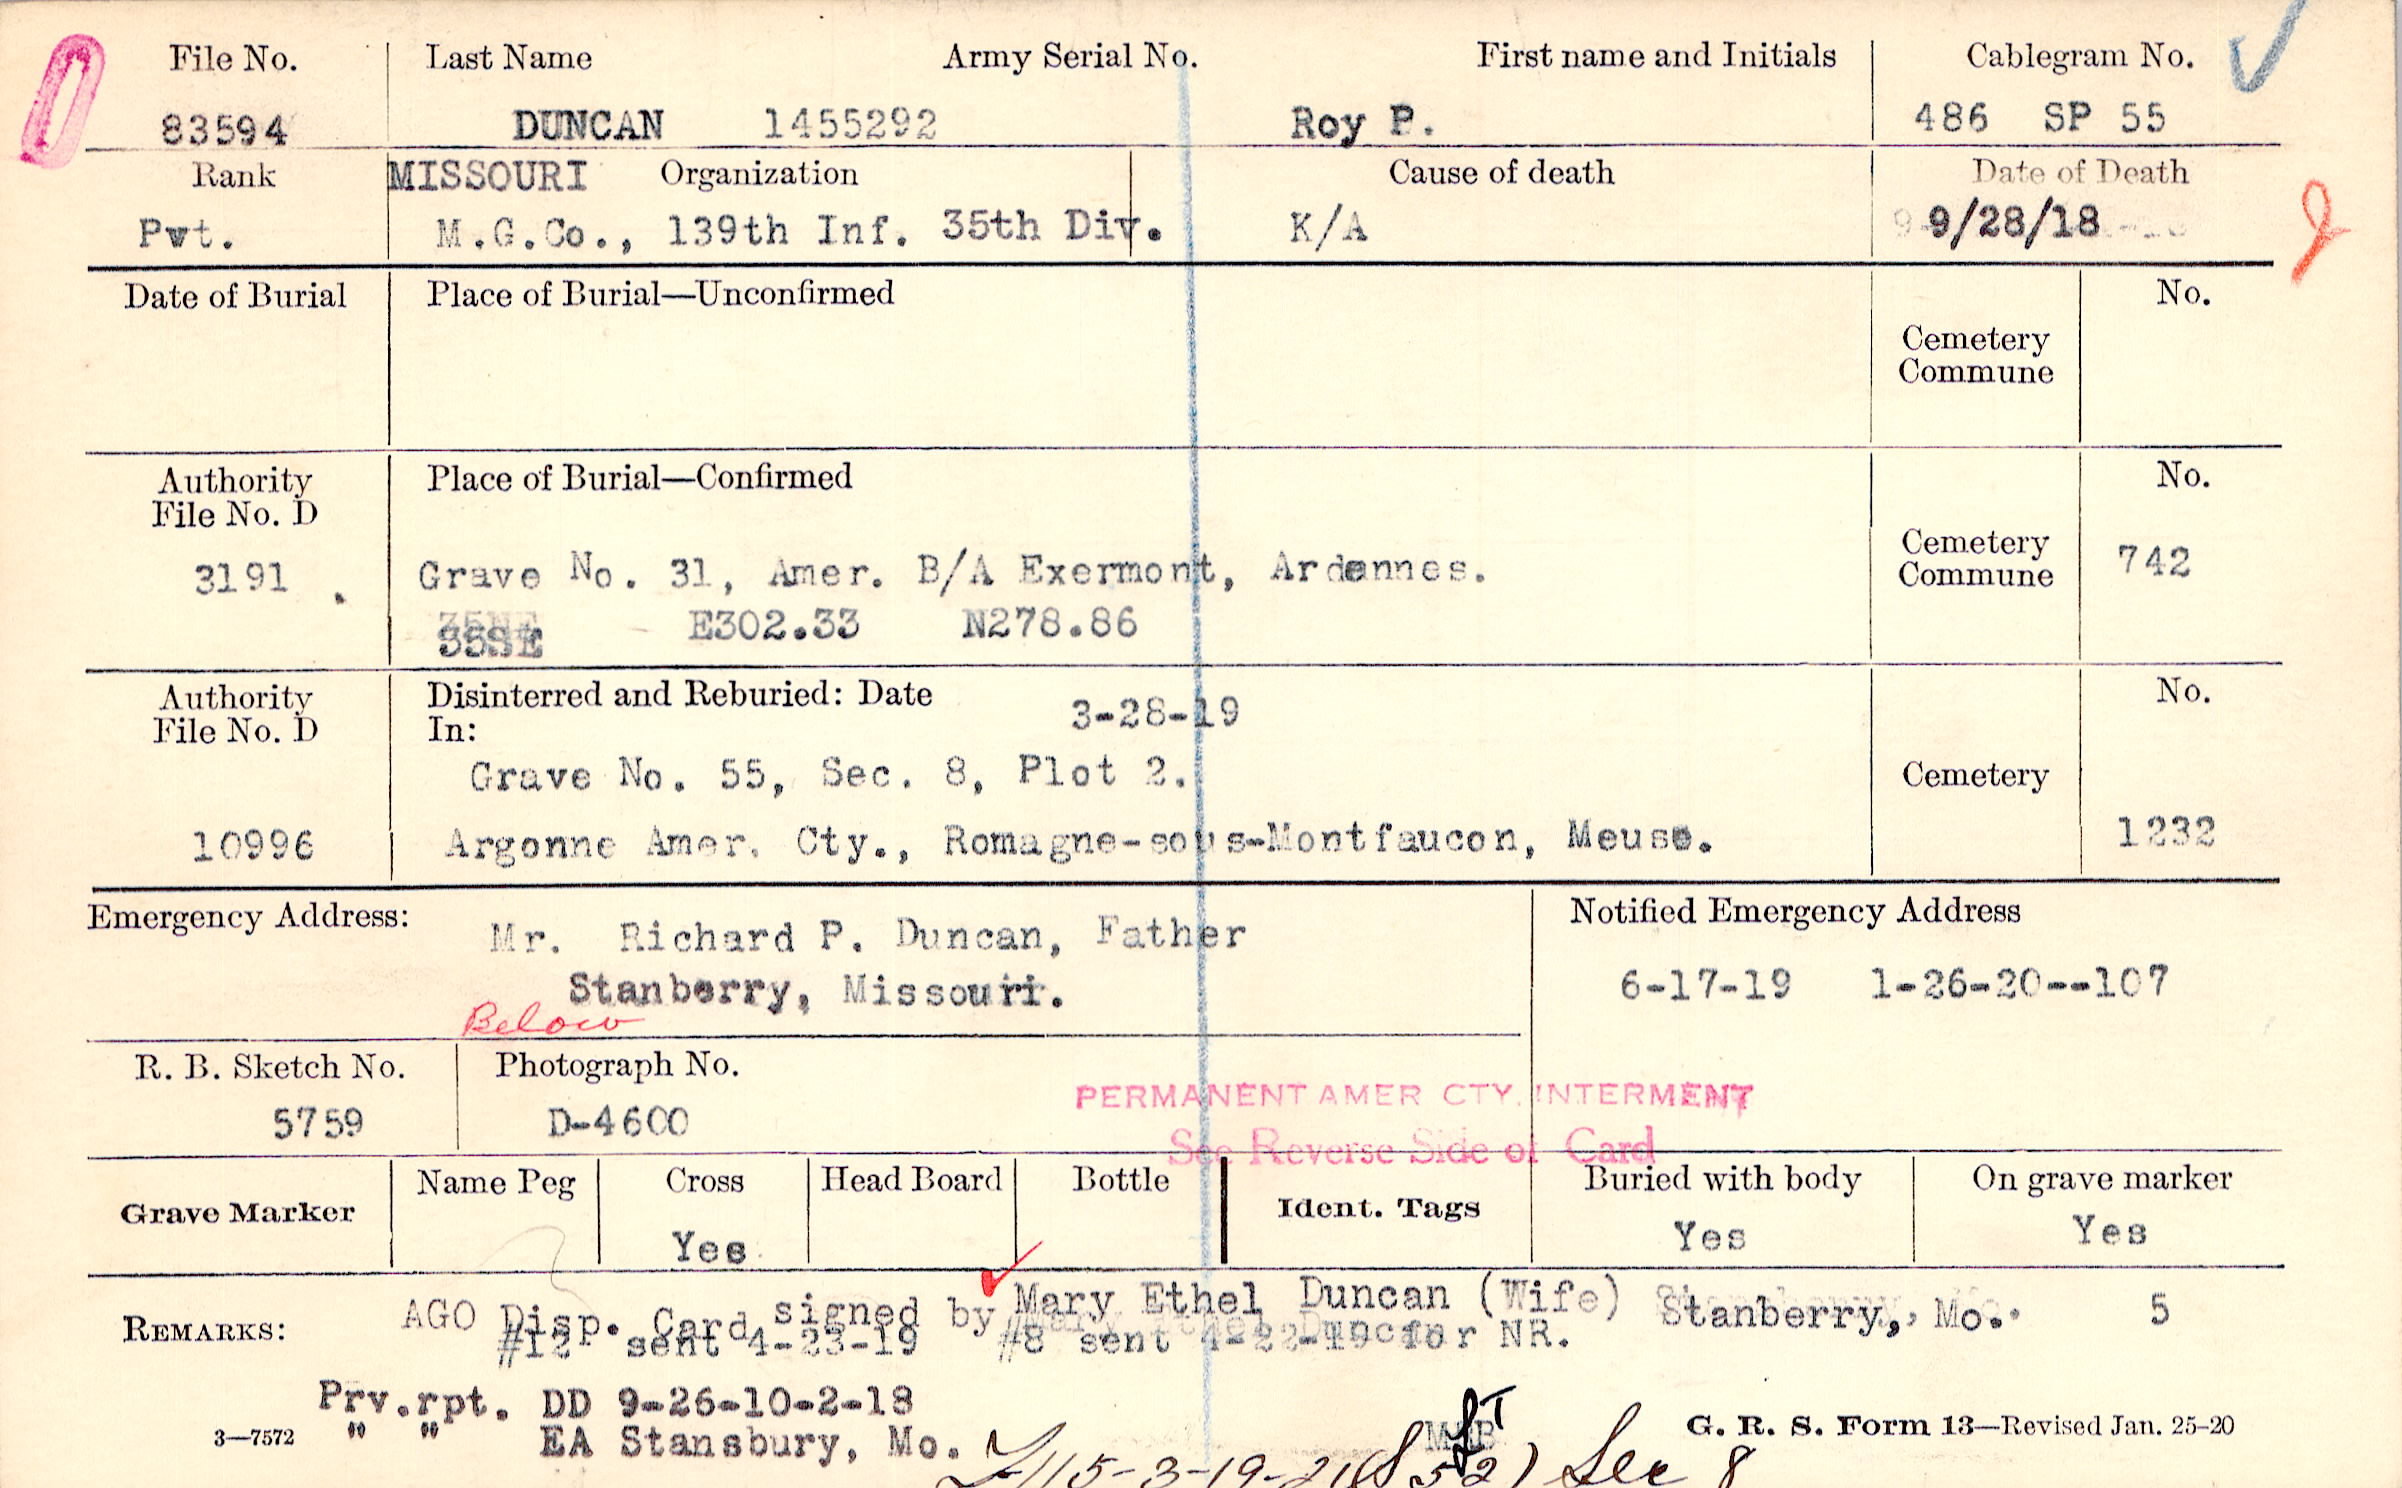 File No. Last Name Army Serial No. First name and Initials Cablegram No.
83594 DUNCAN 1455292 Roy P. 486 SP 55
Rank MISSOURI Organization Cause of death Date of Death
Pvt. M.G.Co., 139th Inf. 35th Div. K/A 9/28/18
Date of Burial Place of Burial—Unconfirmed No.
Cemetery
Commune
Authority Place of Burial—Confirmed No.
File No. D
Cemetery
3191 Grave No. 31, Amer. B/A Exermont, Ardennes. Commune 742
35SE E302.33 N278.86
Authority Disinterred and Reburied: Date 3-28-19 No.
File No. D In:
Grave No. 55, Sec. 8, Plot 2. Cemetery
10996 Argonne Amer. Cty., Romagne-sous-Montfaucon, Meuse. 1232
Emergency Address: Mr. Richard P. Duncan, Father Notified Emergency Address
Stanberry, Missouri. 6-17-19 1-26-20--107
Below
R. B. Sketch No. Photograph No.
5759 D-4600
PERMANENT AMER CTY. INTERMENT
See Reverse Side of Card
Grave Marker Name Peg Cross Head Board Bottle Ident. Tags Buried with body On grave marker
Yes Yes Yes
REMARKS: AGO Disp. Card signed by Mary Ethel Duncan (Wife) Stanberry, Mo. 5
#12 sent 4-23-19 #8 sent 4-22-19 for NR.
Prv.rpt. DD 9-26-10-2-18
" " EA Stansbury, Mo.
3—7572 G. R. S. Form 13—Revised Jan. 25-20
Sec 8